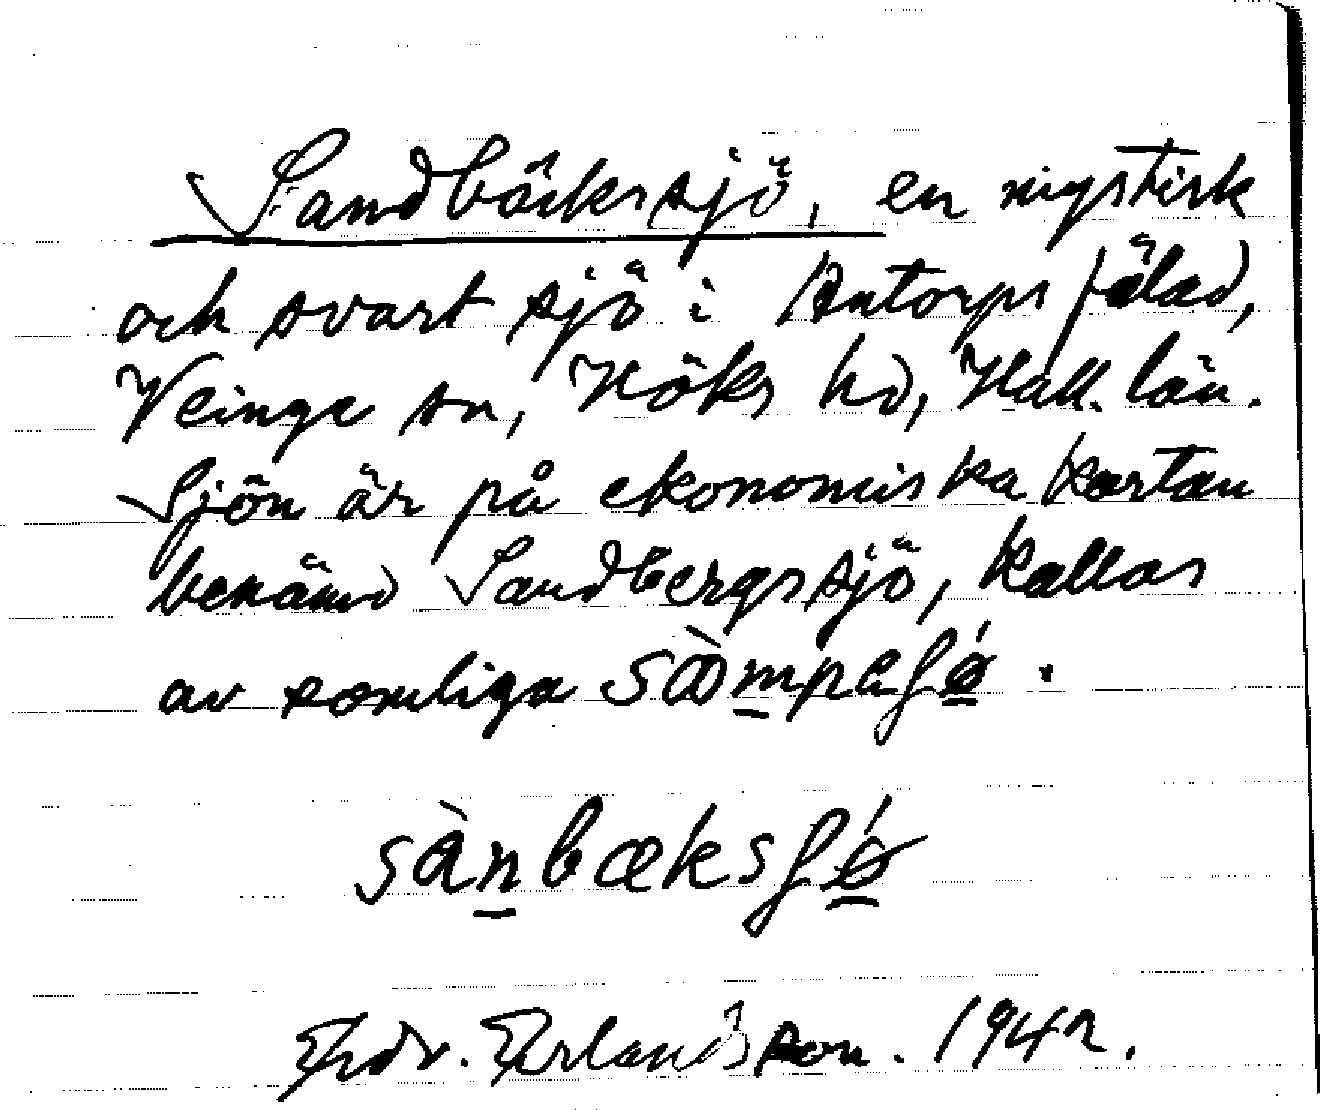 Sandbäckssjö, en mystisk
och svart sjö i Antorps fälad,
Veinge sn, Höks hd, Hall. län.
Sjön är på ekonomiska kartan
benämd Sandbergssjö, kallas
av somliga sòmpaʃǿ.
sànbæksʃǿ
Edv. Erlandsson. 1942.